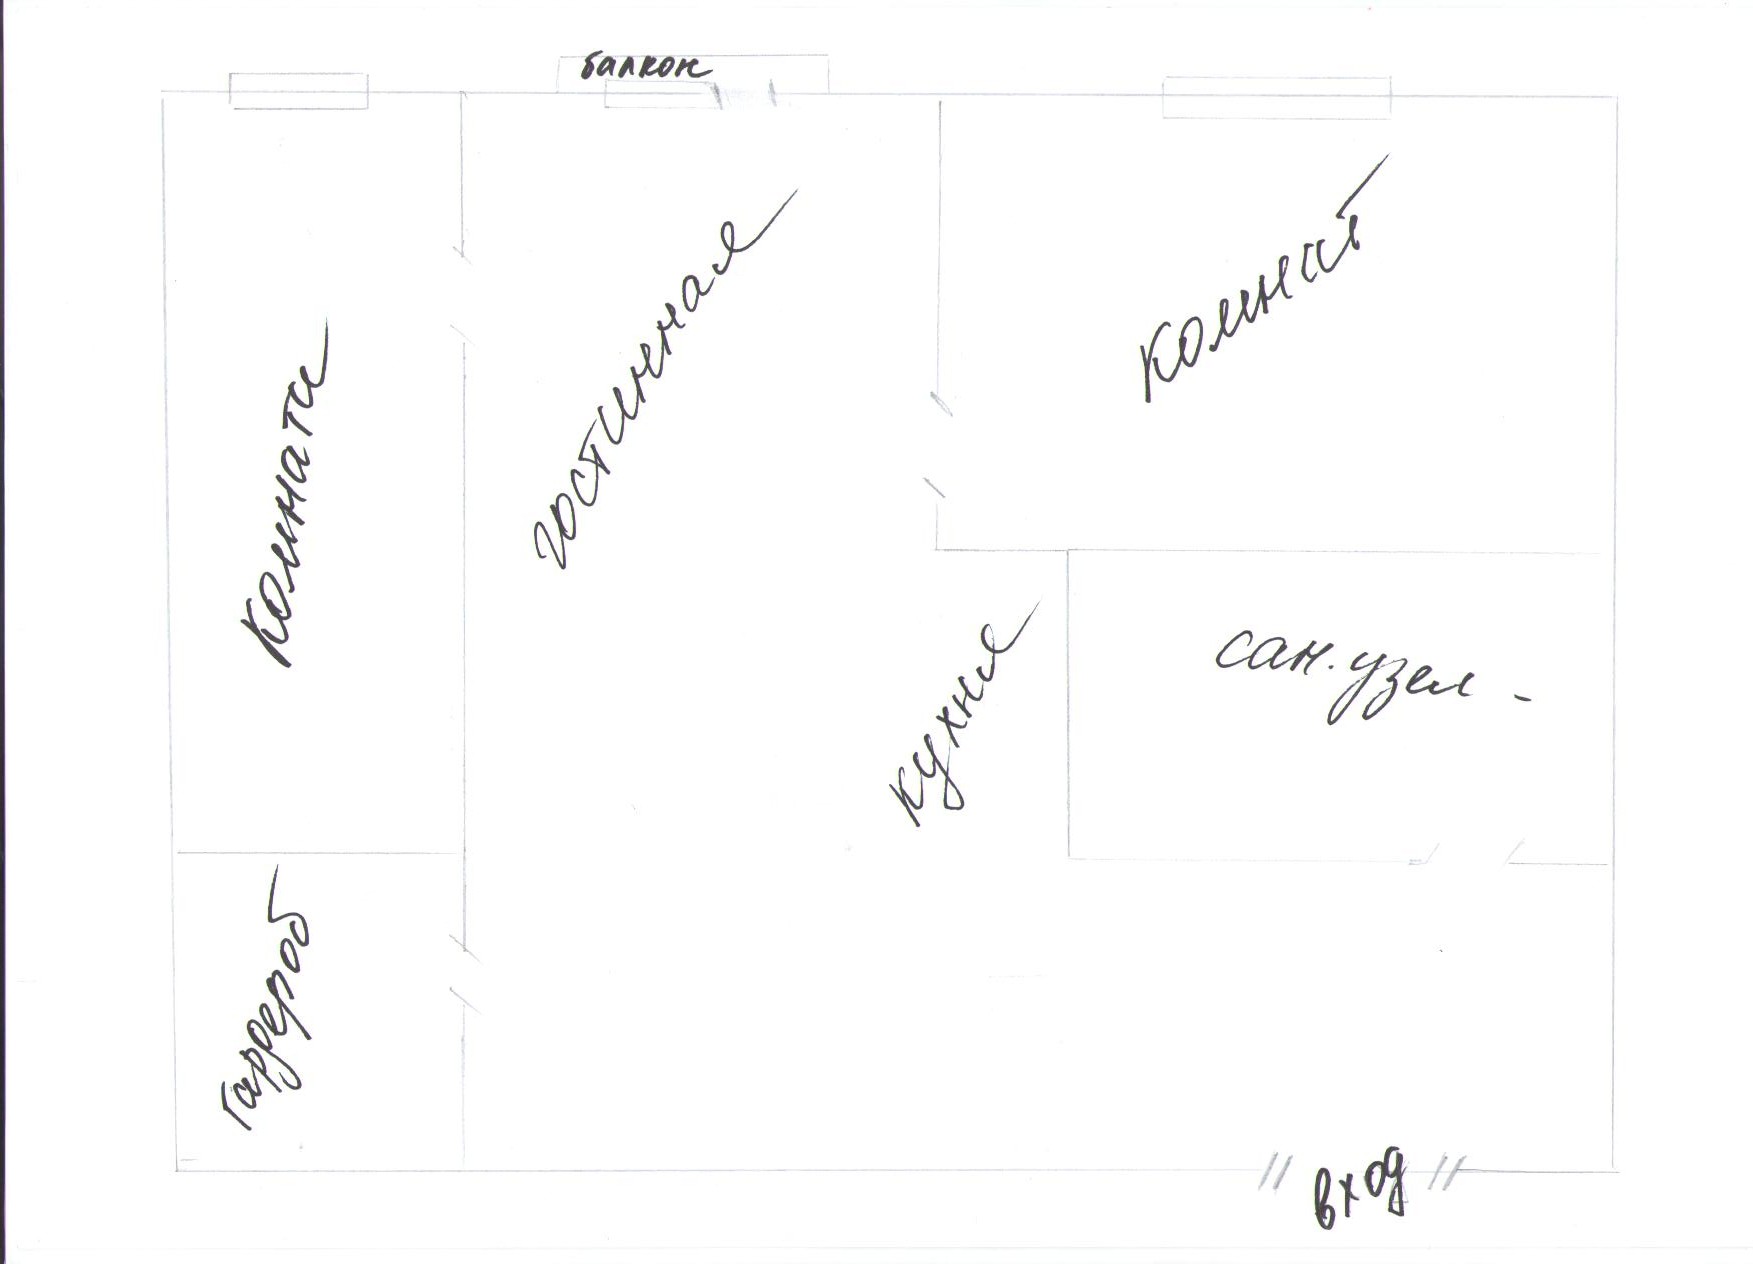 балкон
комната
гостинная
комнат
кухня
сан. узел -
гардероб
вход